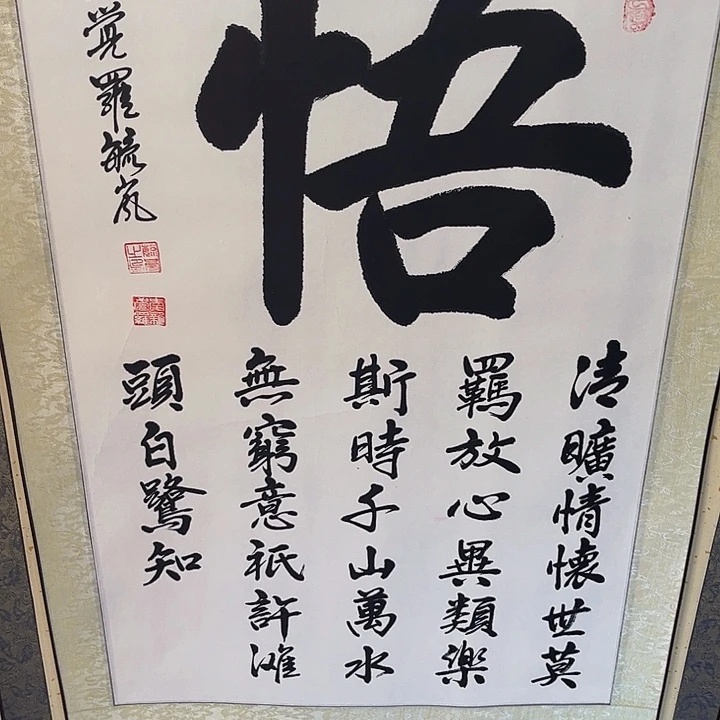 悟
清曠情懷世莫
羈放心異類樂
斯時千山萬水
無窮意祇許灘
頭白鷺知
覺羅毓嵐